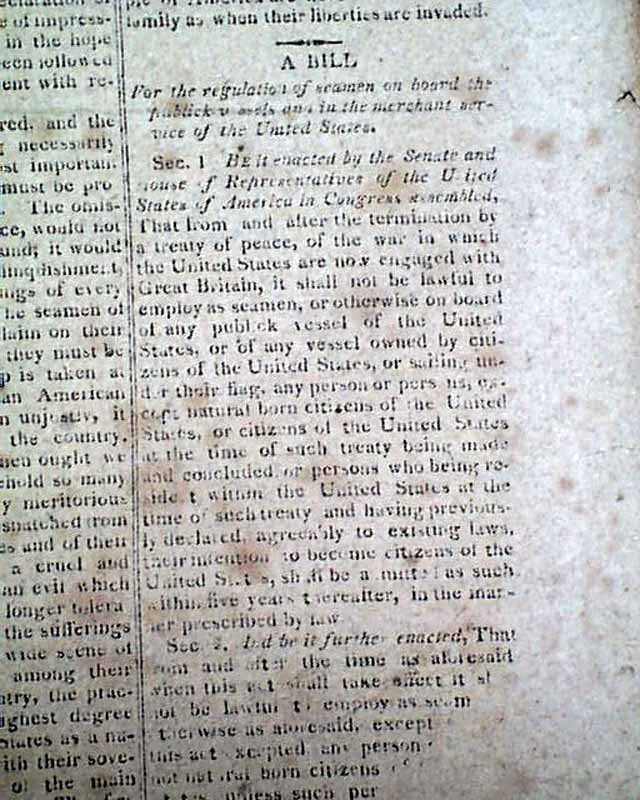 claration of
e of impress-
in the hope
een followed
ent with re-
red, and the
necessarily
st importan
must be pro
The omis-
ce, would not
and; it would
linquishment,
ngs of every
he seamen of
laim on their
they must be
p is taken at
an American
n unjustly, it
the country.
men ought we
ehold so many
y meritorious
spatched from
es and of their
a cruel and
an evil which
longer tolera
the sufferings
wide scene of
among their
ntry, the prac-
ighest degree
States as a na-
ith their sove-
of the main
ple of America are
family as when their liberties are invaded.
A BILL
For the regulation of seamen on board the
publick v ssels and in the merchant ser-
vice of the United States.
Sec. 1 BE it enacted by the Senate and
House of Representatives of the United
States of America in Congress assembled,
That from and after the termination by
a treaty of peace, of the war in which
the United States are now engaged with
Great Britain, it shall not be lawful to
employ as seamen, or otherwise on board
of any publick vessel of the United
States, or of any vessel owned by citi-
zens of the United States, or sailing un-
der their flag, any person or pers ns, ex-
cept natural born citizens of the United
States, or citizens of the United States
at the time of such treaty being made
and concluded, or persons who being re-
side t within the United States at the
time of such treaty and having previous-
ly declared, agreeably to existing laws,
their intention to become citizens of the
United States, shall be admitted as such
within five years thereafter, in the man-
ner prescribed by law
Sec 2. And be it further enacted, That
from and after the time as aforesaid
when this act shall take effect it sh
not be lawful to employ as seam
therwise as aforesaid, except
this act excepted, any person
not natural born citizens
unless such per